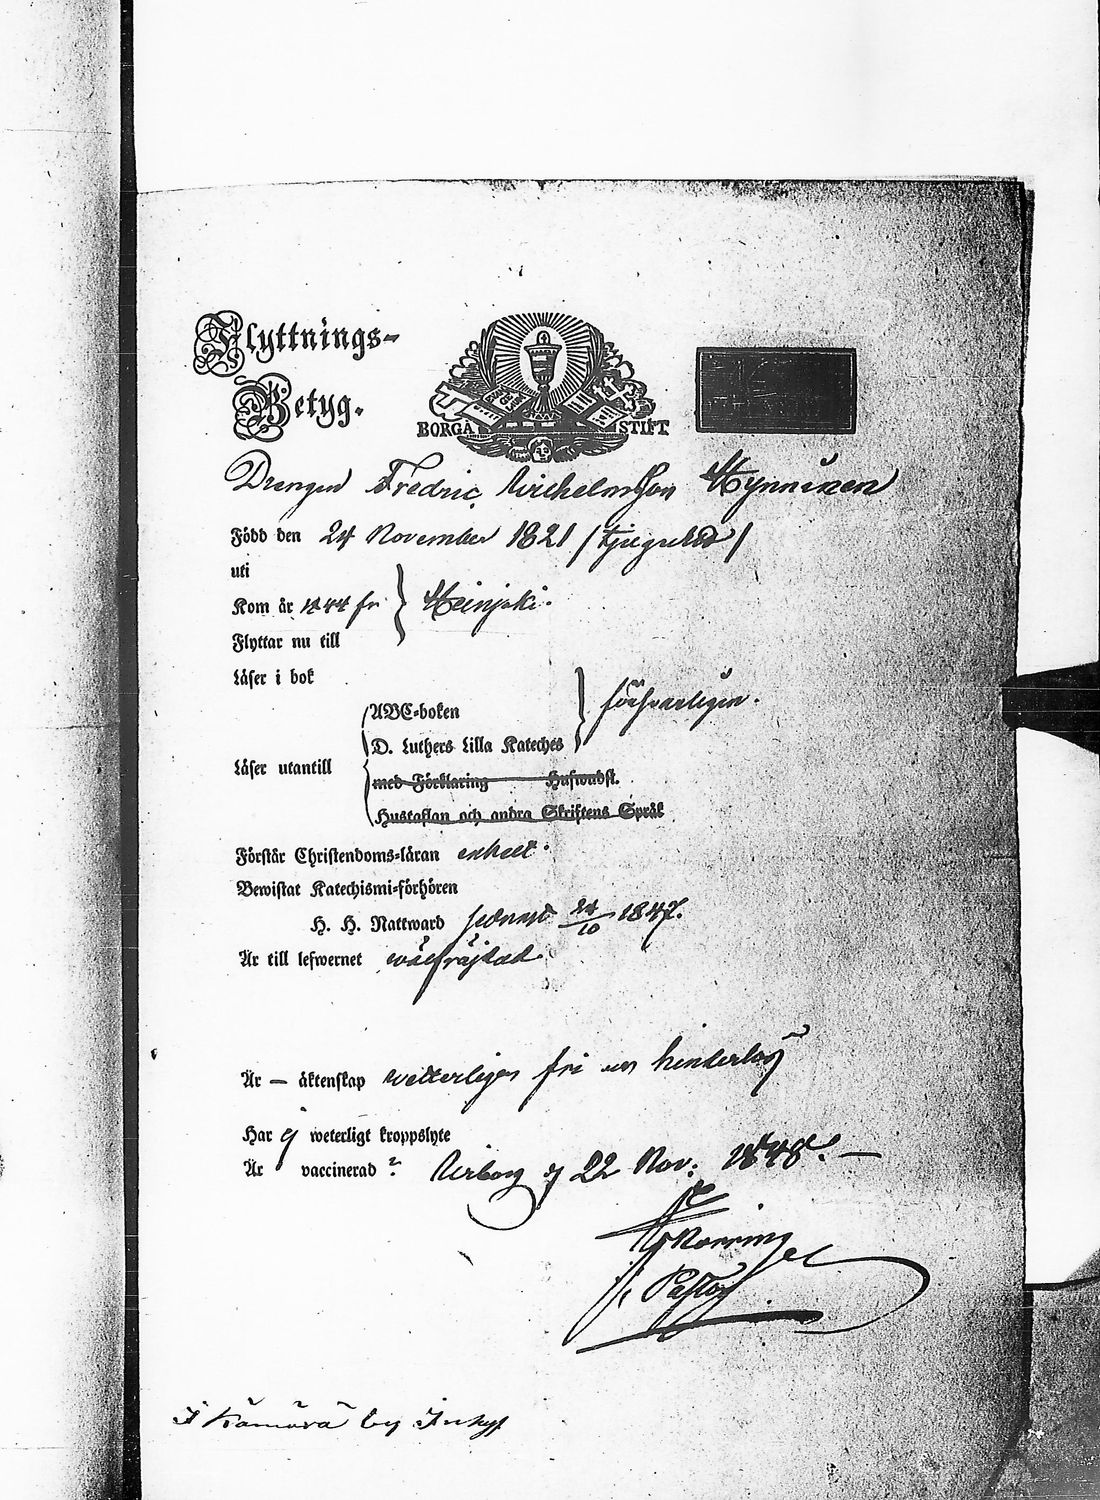 Flyttnings-
Betyg.
BORGÅ STIFT
Drengen Fredric Wilhelmsson Hynninen
Född den 24 November 1821 /
uti
Kom år 1844 fr
Heinjoki.
Flyttar nu till
Läser i bok
ABC-boken
försvarligen.
D. Luthers Lilla Kateches
Läser utantill
med Förklaring Hufwudst.
Hustaflan och andra Skriftens Språk
Förstår Christendoms-läran enkelt.
Bewistat Katechismi-förhören
H. H. Nattward senast 24/10 1847.
Är till lefwernet wälfräjdad.
Är — äktenskap wetterligen fri från hinderlöst
Har ej weterligt kroppslyte
Är vaccinerad? Wiborg d 22 Nov: 1848. —
Pastor
I Kämärä by Inhys